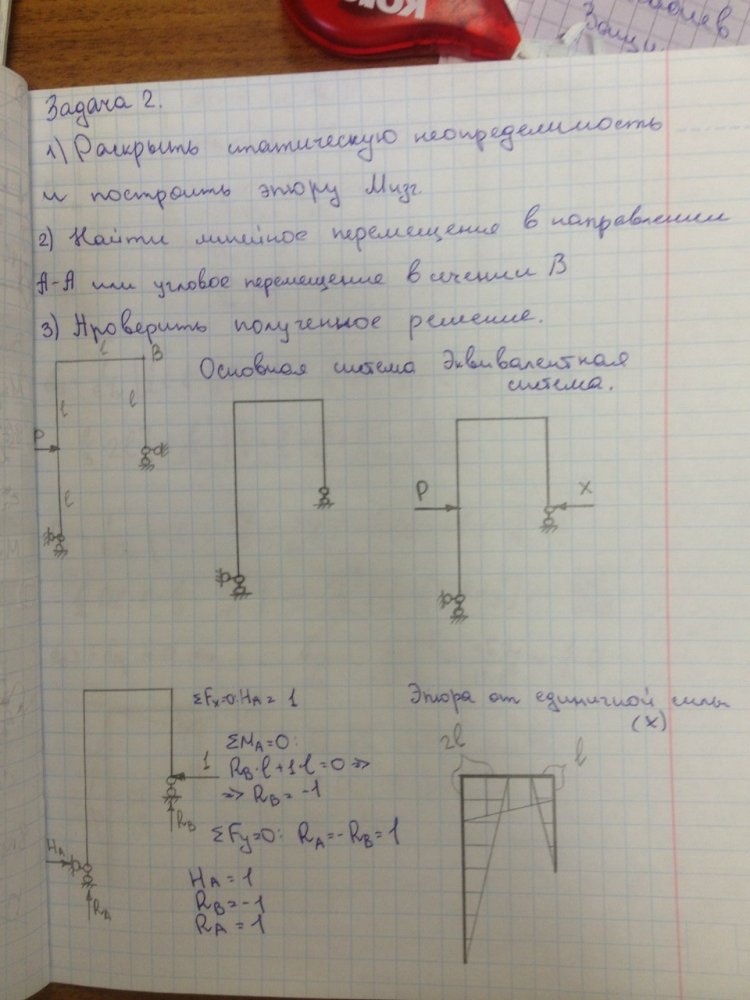 Задача 2.
1) Раскрыть статическую неопределимость
и построить эпюру Mизг
2) Найти линейное перемещение в направлении
A-A или угловое перемещение в сечении B
3) Проверить полученное решение.
l
B
Основная система
Эквивалентная
система.
l
l
P
l
P
X
ΣFx=0: HA = 1
ΣMA=0:
RB·l+1·l=0 =>
=> RB = -1
ΣFy=0: RA=-RB=1
HA = 1
RB = -1
RA = 1
1
RB
HA
RA
Эпюра от единичной силы
(X)
2l
l